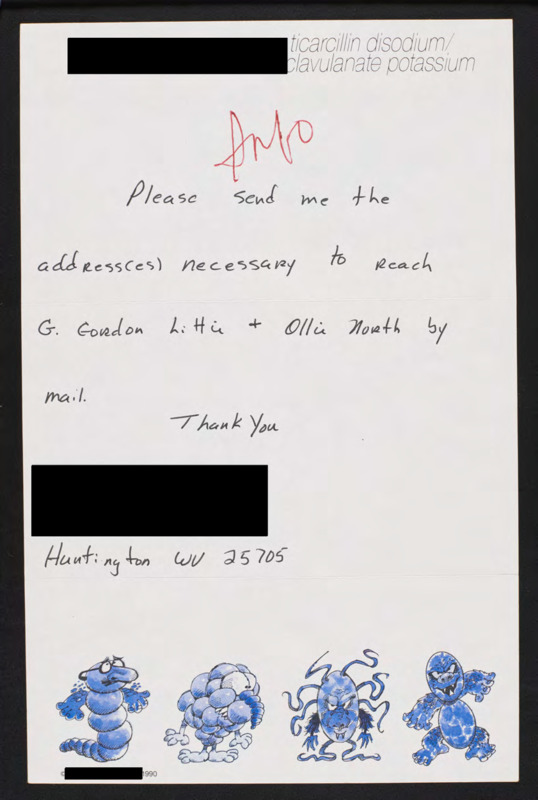 ticarcillin disodium/
clavulanate potassium
Info
Please send me the
address(es) necessary to reach
G. Gordon Littie + Ollie North by
mail.
Thank You
Huntington WV 25705
©
1990